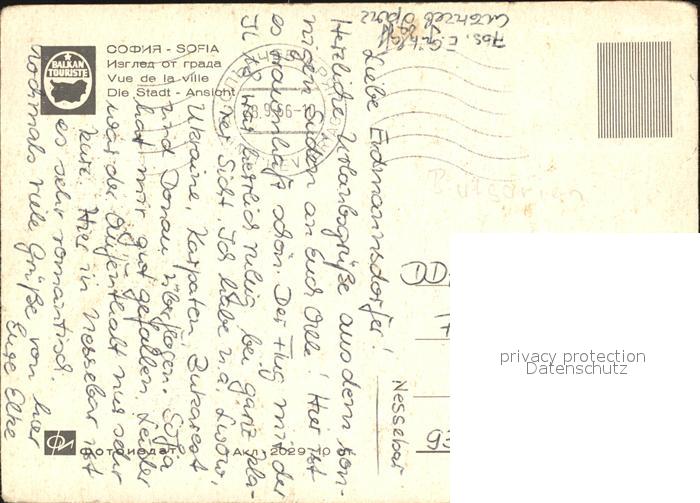 СОФИЯ - SOFIA
Изглед от града
Vue de la ville
Die Stadt - Ansicht
BALKAN
TOURISTE
Liebe Erdmannsdorfer!
Herzliche Urlaubsgrüße aus dem son-
nigen Süden an Euch alle! Hier ist
es traumhaft schön. Der Flug mit der
Il 18 war herrlich ruhig bei ganz kla-
rer Sicht. Ich habe u.a. Lwow,
Ukraine, Karpaten, Bukarest
und Donau überflogen. Sofia
hat mir gut gefallen. Leider
war der Aufenthalt nur sehr
kurz. Hier in Nessebar ist
es sehr romantisch.
Nochmals viele Grüße von hier
Eure Elke
Nessebar
Abs. E.
Bulgarien
фотоиздат
Акл. 2029
privacy protection
Datenschutz